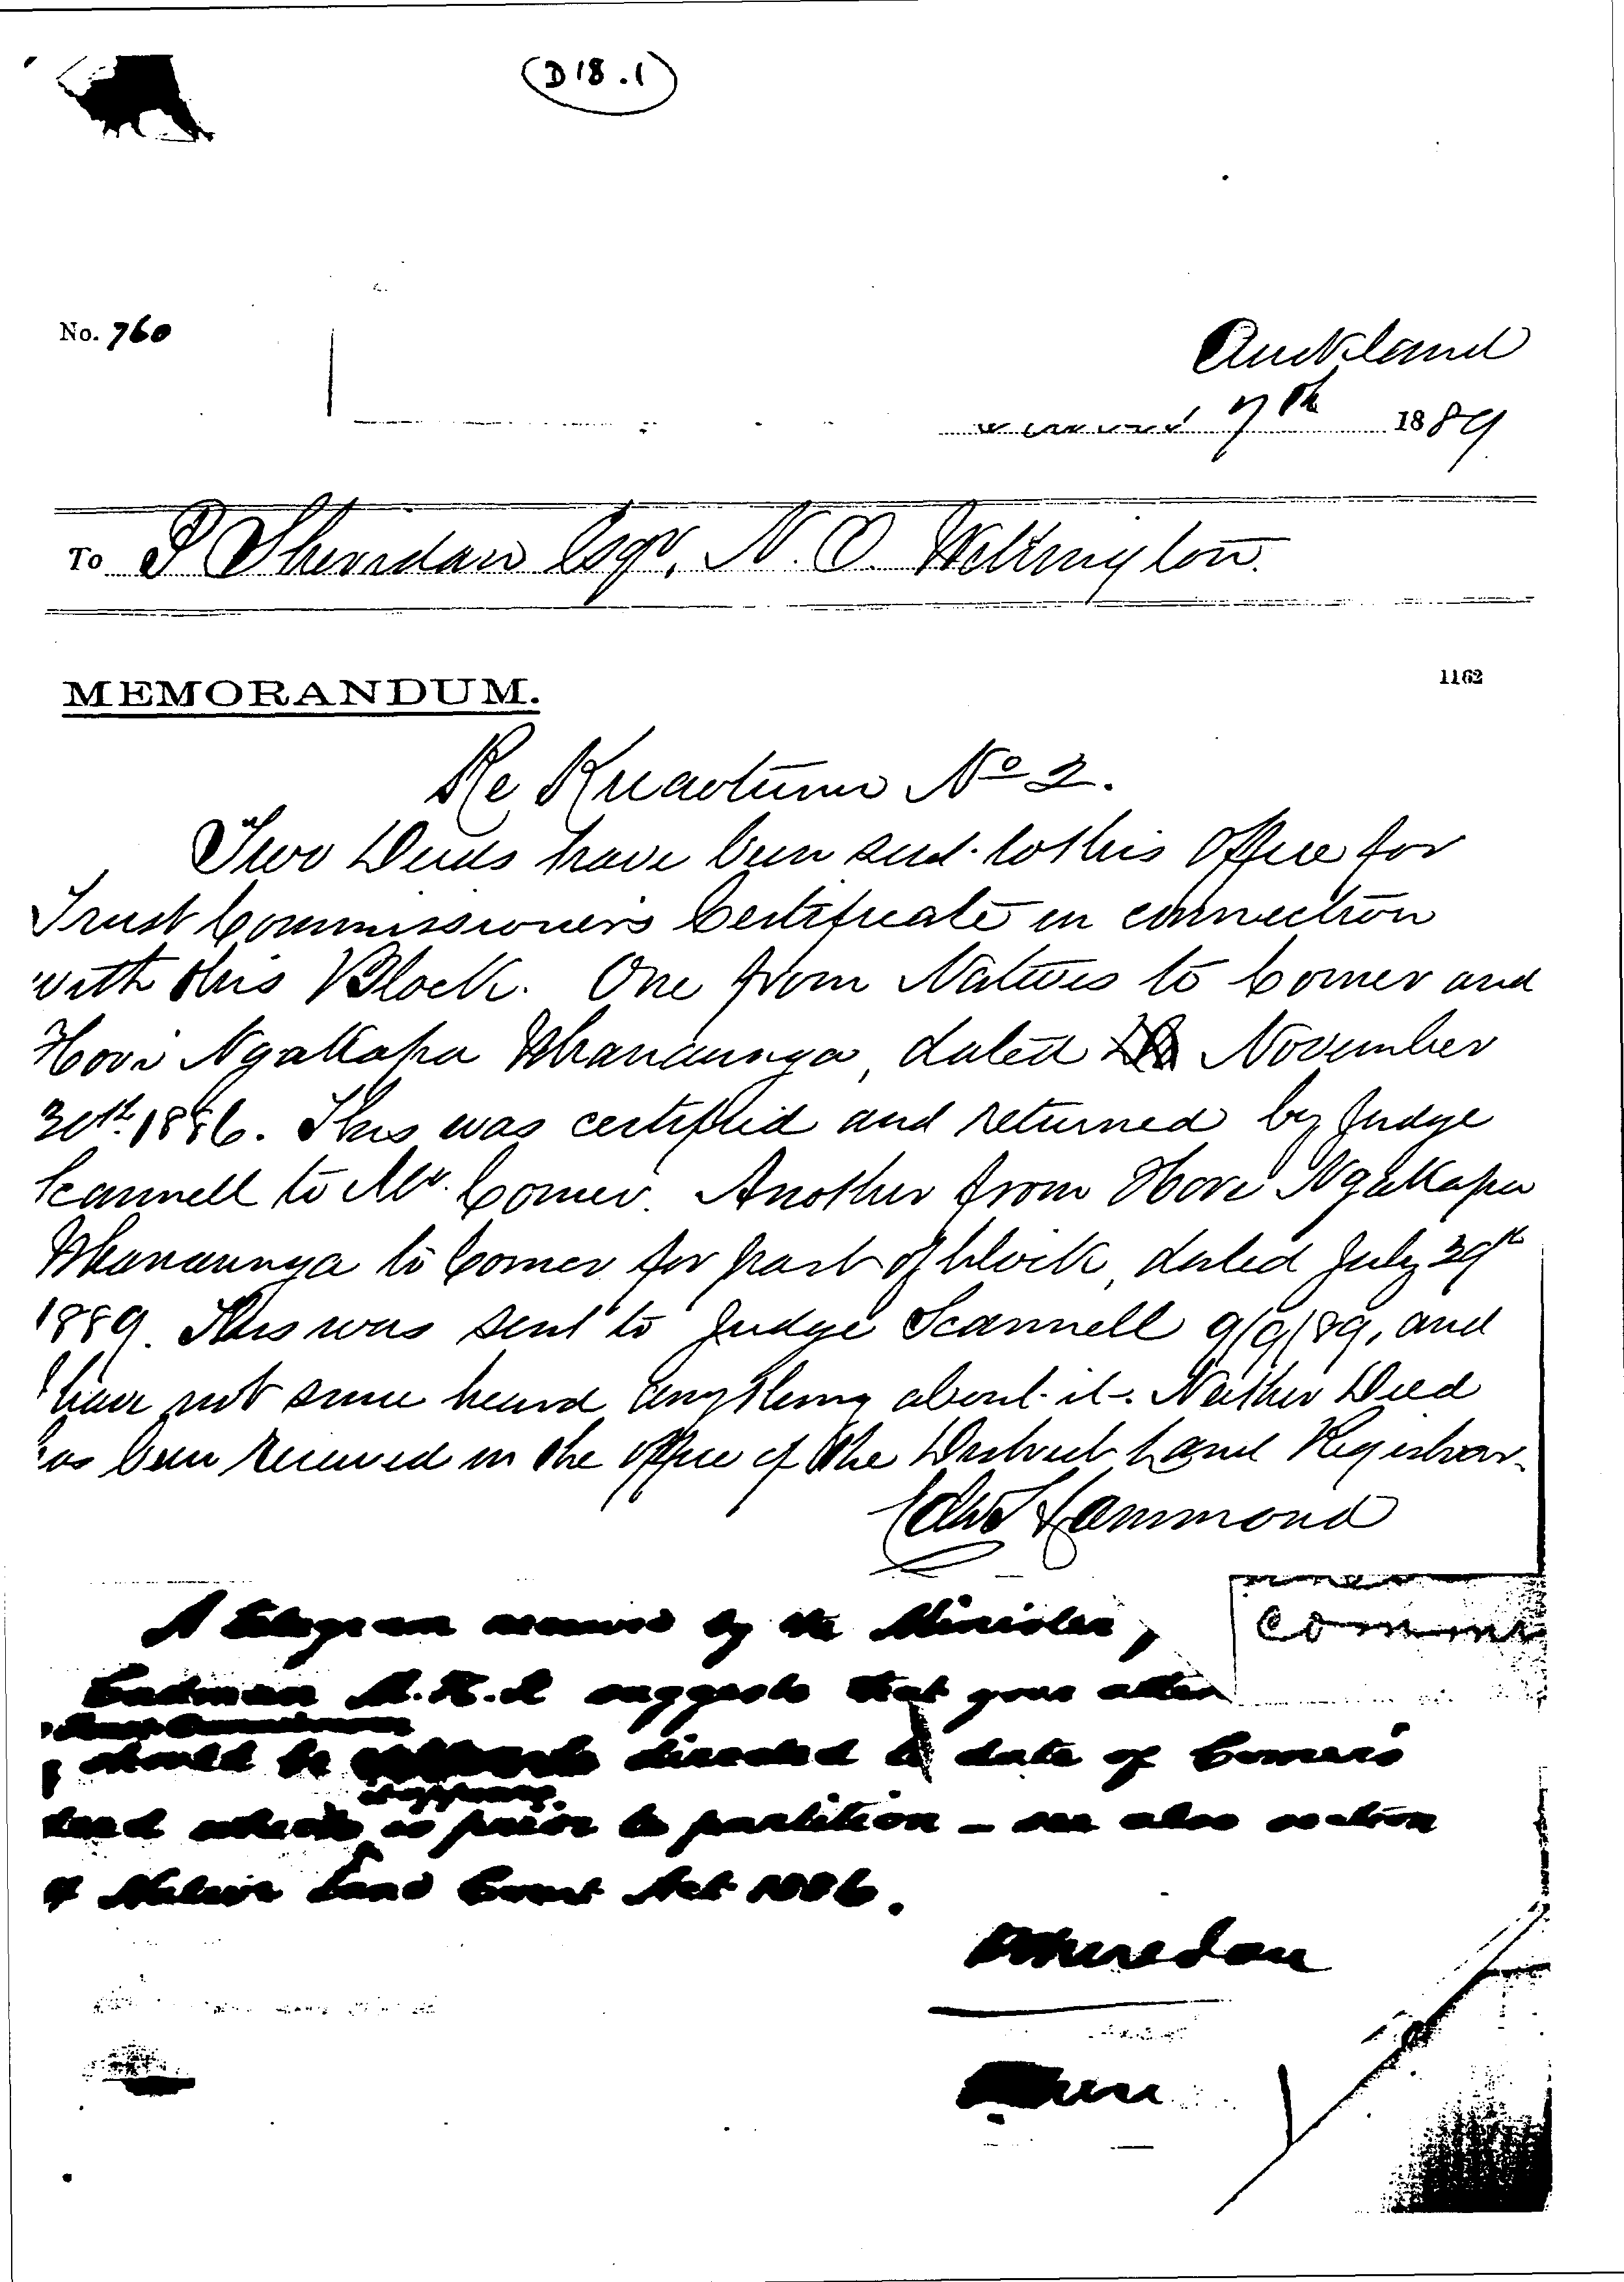 D 18.1
No. 760
Auckland
7th 1889
To P Sheridan Esqr. N. O. Wellington.
MEMORANDUM.
1162
Re Kuaotunu No 2.
Two Deeds have been sent to this Office for
Trust Commissioners Certificate in connection
with this Block. One from Natives to Comer and
Hori Ngakapa Whanaunga, dated November
30th 1886. This was certified and returned by Judge
Scannell to Mr. Comer. Another from Hori Ngakapa
Whanaunga to Comer for part of block, dated July 29th
1889. This was sent to Judge Scannell 9/9/89, and
have not since heard anything about it. Neither Deed
has been received in the office of the District Land Registrar.
Edw Hammond
A telegram received by the Minister,
Cadman M.H.R suggests that your atten
should be directed to date of Comer's
deed which is prior to partition - see also section
of Native Land Court Act 1886.
PSheridan